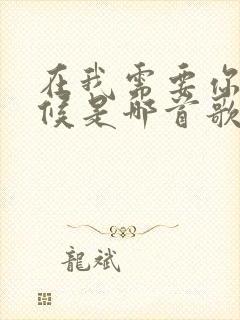 在我需要你
候是哪首歌
龍斌